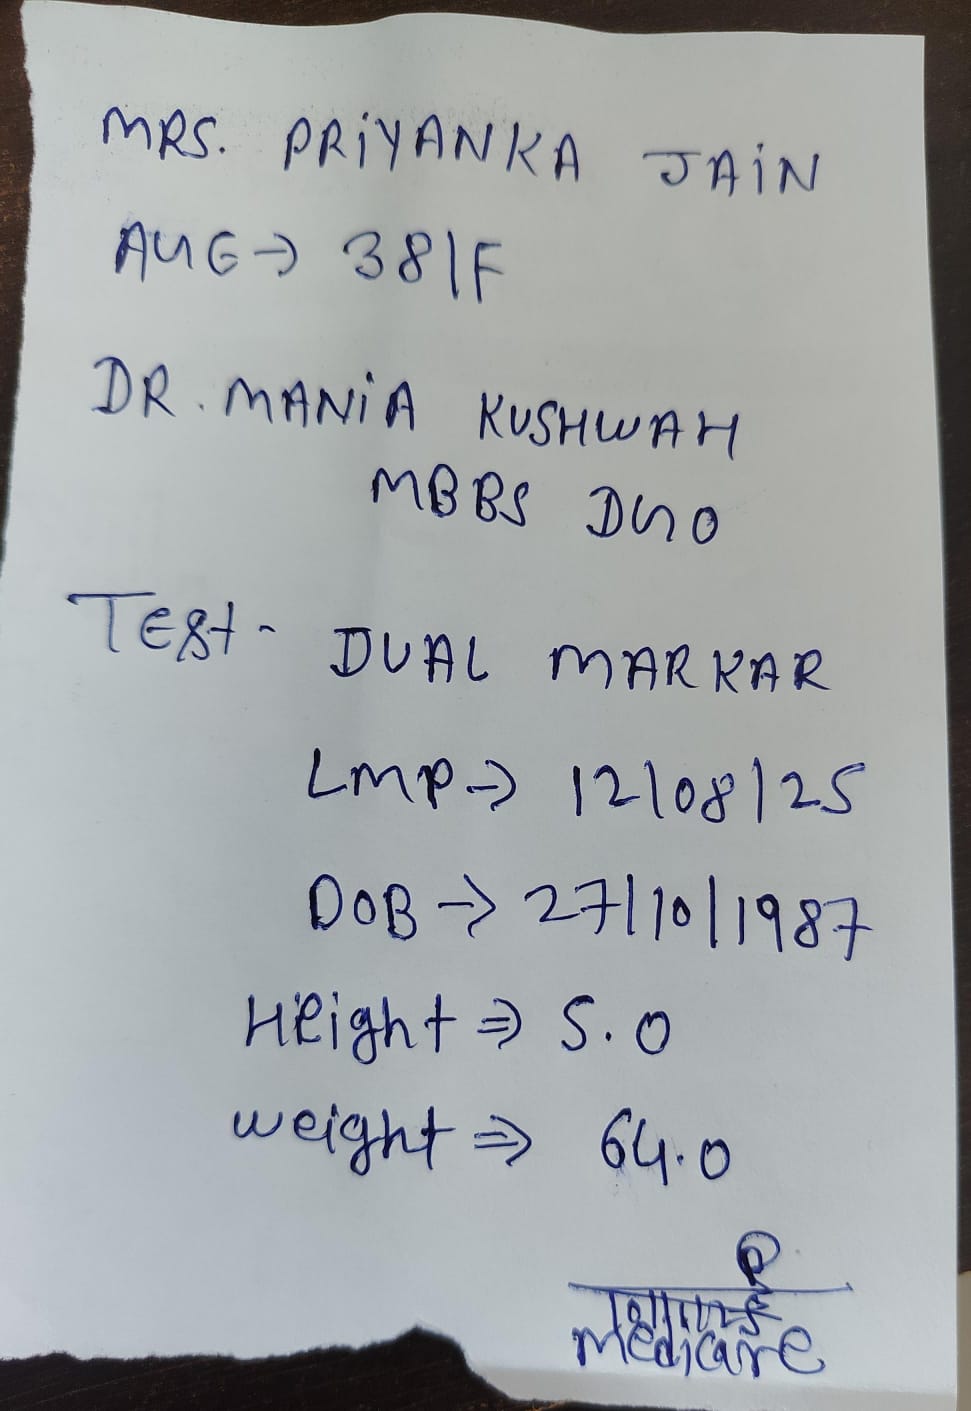 MRS. PRIYANKA JAIN
AUG→ 38/F
DR. MANIA KUSHWAH
MBBS DGO
Test - DUAL MARKAR
LMP→ 12/08/25
DOB → 27/10/1987
Height ⇒ 5.0
weight ⇒ 64.0
medicare